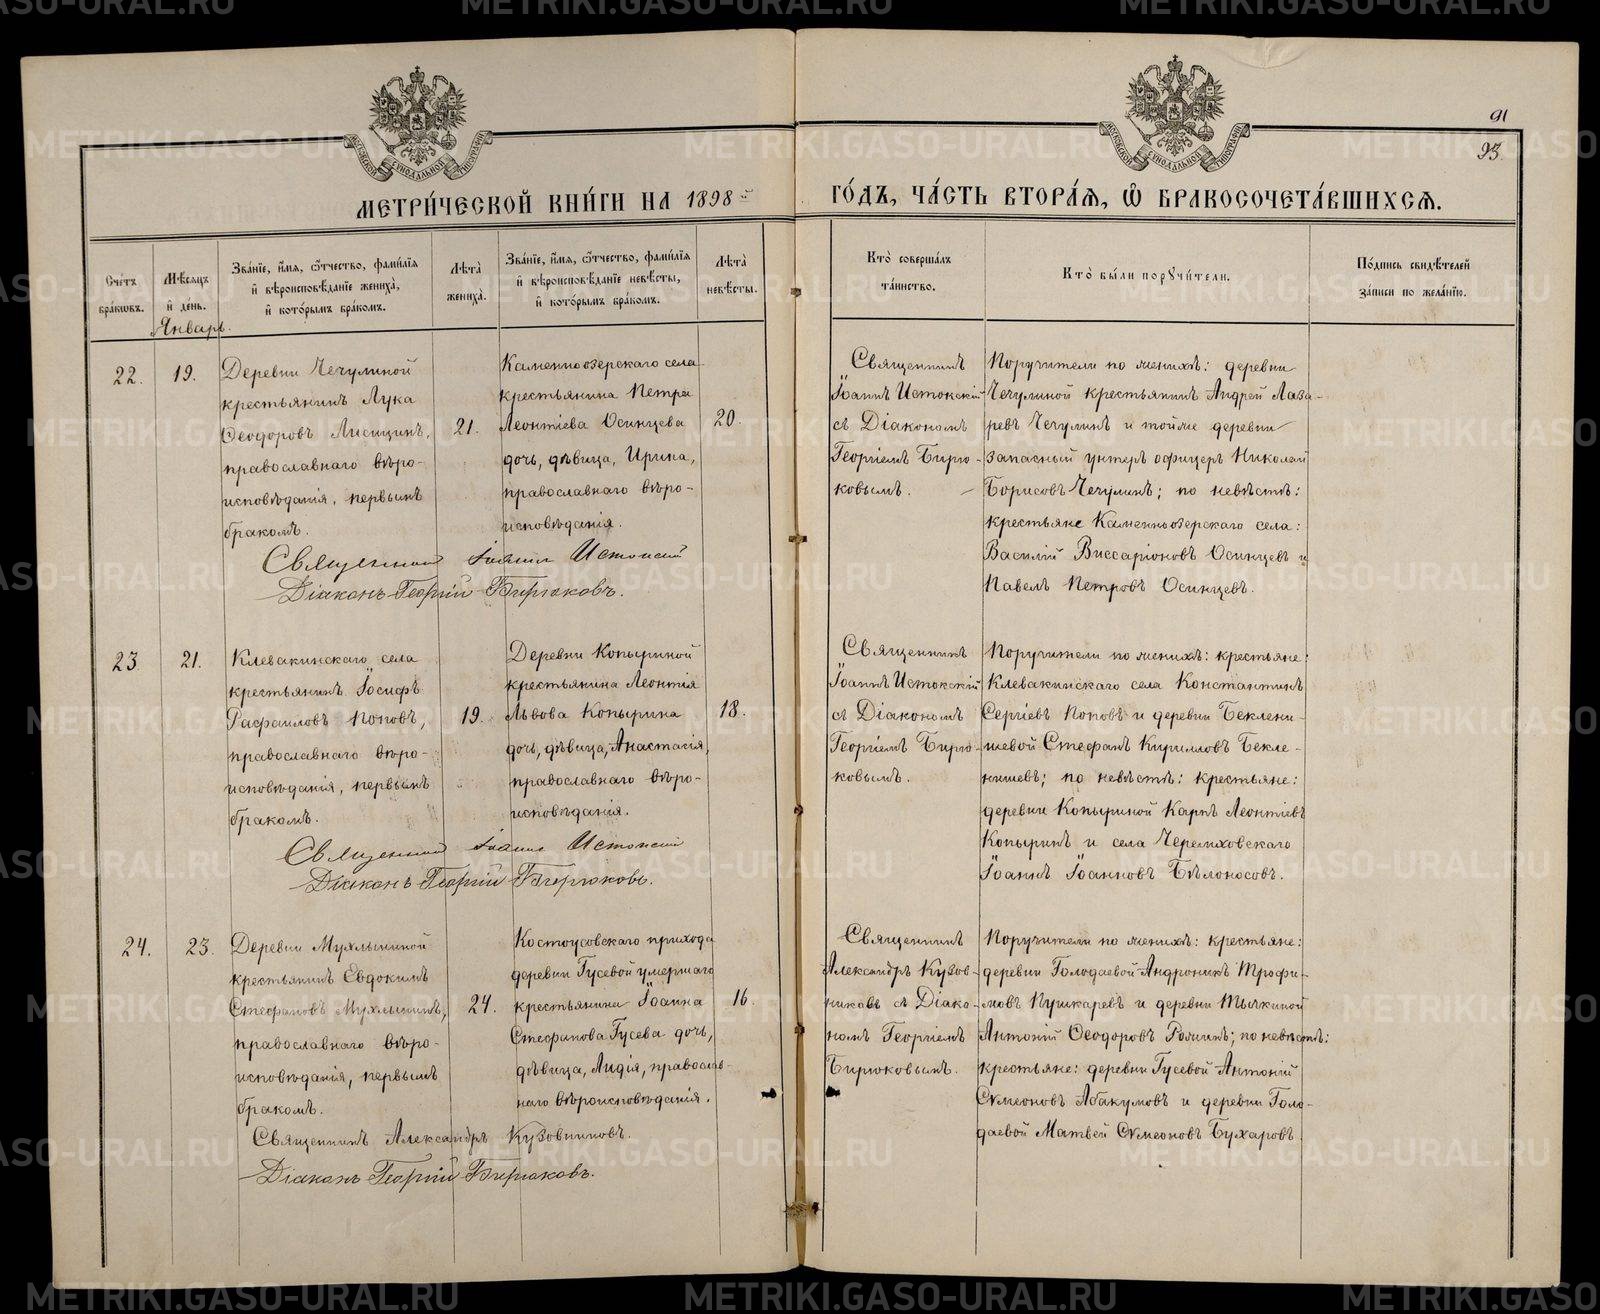 91
93.
МЕТРИ́ЧЕСКОЙ КНИ́ГИ НА 1898 й
ГО́ДЪ, ЧА́СТЬ ВТОРА́Я, Ѽ БРАКОСОЧЕТА́ВШИХСЯ.
Сче́тъ бра́ковъ.
Мѣ́сяцъ и҆ де́нь.
Зва́нїе, и҆́мя, ѻ҆́тчество, фами́лїя
и҆ вѣроисповѣ́данїе жениха̀,
и҆ кото́рымъ бра́комъ.
Лѣта̀ жениха̀.
Зва́нїе, и҆́мя, ѻ҆́тчество, фами́лїя
и҆ вѣроисповѣ́данїе невѣ́сты,
и҆ кото́рымъ бра́комъ.
Лѣта̀ невѣ́сты.
Кто̀ соверша́лъ
та́инство.
Кто̀ бы́ли поручи́тели.
По́дпись свидѣ́телей
за́писи по жела́нїю.
Январь.
22.
19.
Деревни Чечулиной
крестьянинъ Лука
Ѳеодоровъ Лисицинъ,
православнаго вѣро-
исповѣданія, первымъ
бракомъ.
21.
Каменноозерскаго села
крестьянина Петра
Леонтіева Осинцева
дочь, дѣвица, Ирина,
православнаго вѣро-
исповѣданія.
20.
Священникъ
Іоаннъ Истокскій
съ Діакономъ
Георгіемъ Бирю-
ковымъ.
Поручители по женихѣ: деревни
Чечулиной крестьянинъ Андрей Лаза-
ревъ Чечулинъ и тойже деревни
запасный унтеръ офицеръ Николай
Борисовъ Чечулинъ; по невѣстѣ:
крестьяне Каменноозерскаго села:
Василій Виссаріоновъ Осинцевъ и
Павелъ Петровъ Осинцевъ.
Священникъ Іоаннъ Истокскій
Діаконъ Георгій Бирюковъ.
23
21.
Клевакинскаго села
крестьянинъ Іосифъ
Рафаиловъ Поповъ,
православнаго вѣро-
исповѣданія, первымъ
бракомъ.
19.
Деревни Копыриной
крестьянина Леонтія
Львова Копырина
дочь, дѣвица, Анастасія,
православнаго вѣро-
исповѣданія.
18.
Священникъ
Іоаннъ Истокскій
съ Діакономъ
Георгіемъ Бирю-
ковымъ.
Поручители по женихѣ: крестьяне:
Клевакинскаго села Константинъ
Сергіевъ Поповъ и деревни Беклени-
шевой Стефанъ Кирилловъ Бекле-
нишевъ; по невѣстѣ: крестьяне:
деревни Копыриной Карпъ Леонтіевъ
Копыринъ и села Черемховскаго
Іоаннъ Іоанновъ Бѣлоносовъ.
Священникъ Іоаннъ Истокскій
Діаконъ Георгій Бирюковъ.
24.
23.
Деревни Мухлыниной
крестьянинъ Евдокимъ
Стефановъ Мухлынинъ,
православнаго вѣро-
исповѣданія, первымъ
бракомъ.
24.
Костоусовскаго прихода
деревни Гусевой умершаго
крестьянина Іоанна
Стефанова Гусева дочь,
дѣвица, Лидія, православ-
наго вѣроисповѣданія.
16.
Священникъ
Александръ Кузов-
никовъ съ Діако-
номъ Георгіемъ
Бирюковымъ.
Поручители по женихѣ: крестьяне:
деревни Голодаевой Андроникъ Трофи-
мовъ Пушкаревъ и деревни Тычкиной
Антоній Ѳеодоровъ; по невѣстѣ:
крестьяне: деревни Гусевой Антоній
Сѵмеоновъ Абакумовъ и деревни Голо-
даевой Матвей Сѵмеоновъ Бухаровъ.
Священникъ Александръ Кузовниковъ.
Діаконъ Георгій Бирюковъ.
METRIKI.GASO-URAL.RU